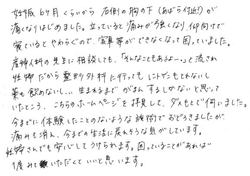 妊娠6ヶ月くらいから 右側の胸の下（あばら付近）が
痛くなりはじめました。立っていると痛みが強くなり 仰向けで
寝ているとやわらぐので、家事等ができなくなって困っていました。
産婦人科の先生に相談しても、「そんなこともあるよー」って流され
妊婦だから整形外科に行っても、レントゲンもとれないし
薬も飲めない…。生まれるまでがまんするしかないと思って
いたところ、こちらのホームページを拝見して、ダメもとで伺いました。
今までに体験したことのないような施術でおどろきましたが、
痛みも消え、今までの生活に戻れそうな気がしています。
妊婦さんでも安心してうけられます。困っていることがあれば
1度みていただくといいと思います。